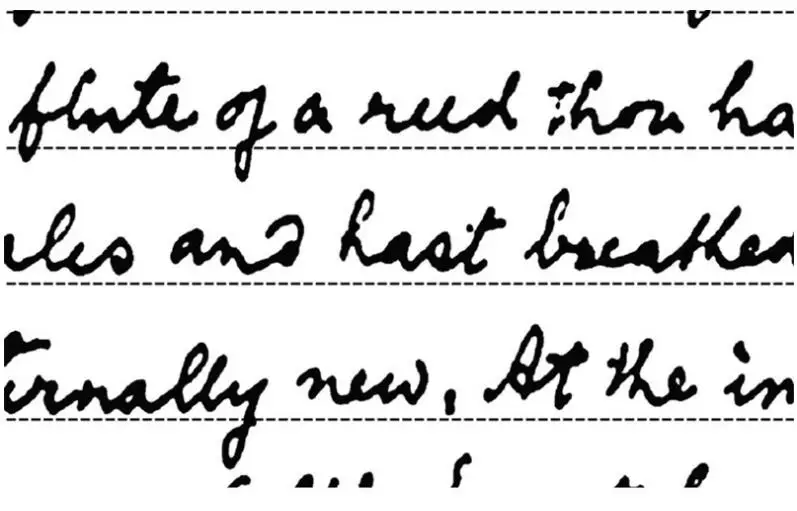 flute of a reed thou ha
les and hast breathed
ernally new. At the in